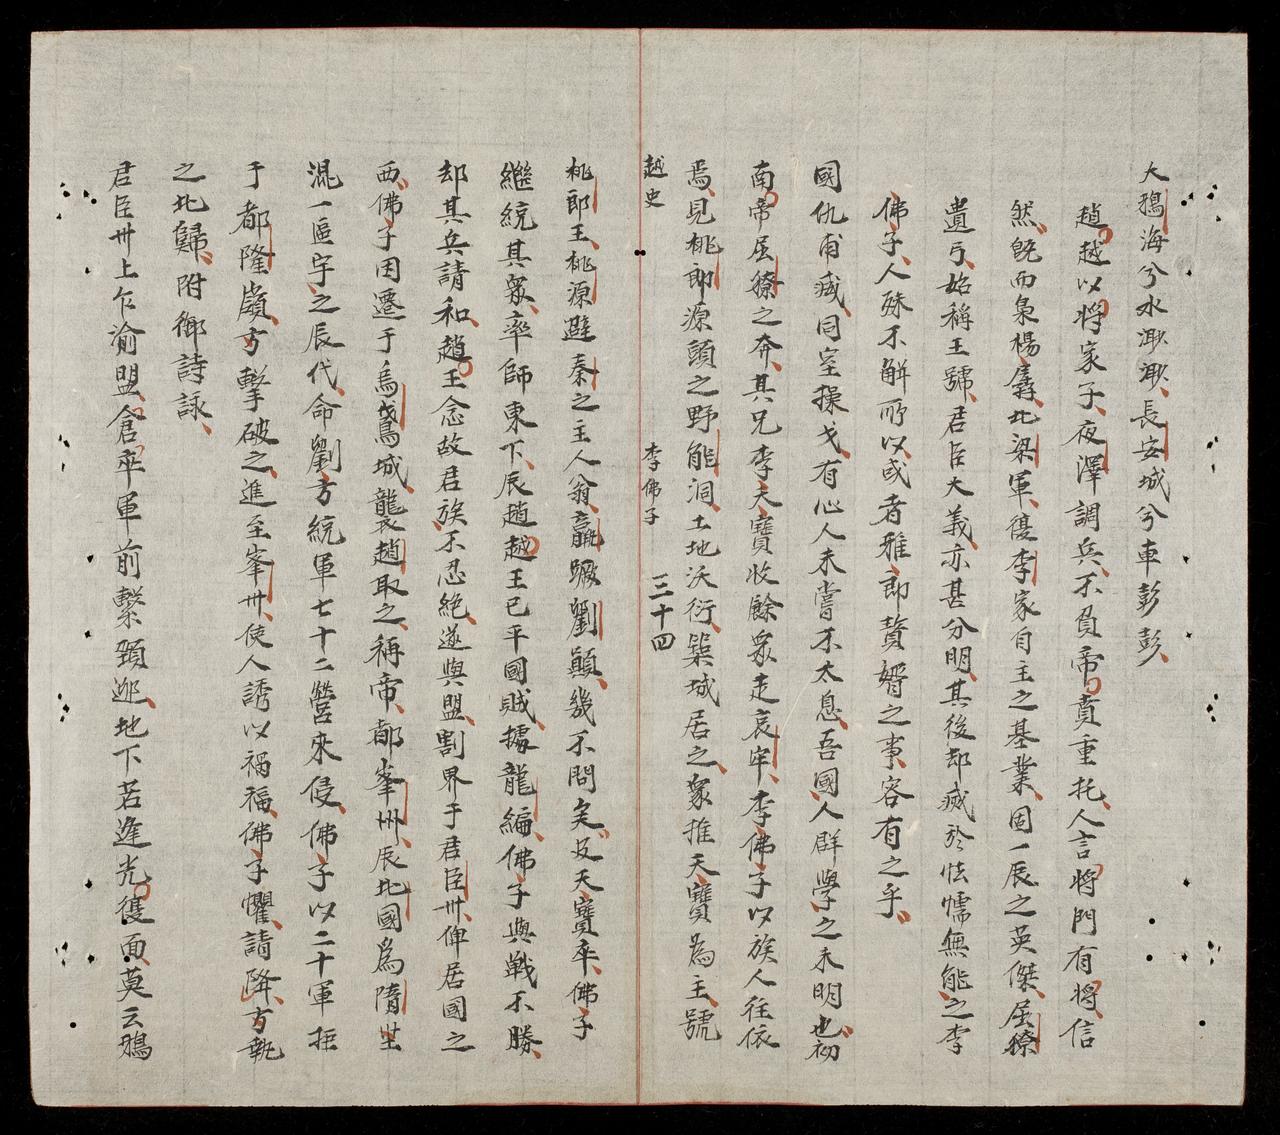 大鴉海兮水渺渺長安城兮車彭彭
趙越以將家子夜澤調兵不負帝賁重托人言將門有將信
然旣而梟楊孱北梁軍復李家自主之基業固一辰之英傑屈獠
遺弓始稱王號君臣大義亦甚分明其後却滅於怯懦無能之李
佛子人殊不解所以或者雅郎贅婿之事容有之乎
國仇甫滅同室操戈有心人未嘗不太息吾國人群學之未明也初
南帝屈獠之奔其兄李天寶收餘衆走哀牢李佛子以族人往依
焉見桃郎源頭之野能洞土地沃衍築城居之衆推天寶為主號
越史 李佛子 三十四
桃郎王桃源避秦之主人翁贏蹶劉顚幾不問矣及天寶卒佛子
繼統其衆率師東下辰趙越王已平國賊據龍編佛子與戰不勝
却其兵請和趙王念故君族不忍絶遂與盟割界于君臣卅俾居國之
西佛子因遷于烏鳶城襲趙取之稱帝都峯州辰北國爲隋丗
混一區宇之辰代命劉方統軍七十二營來侵佛子以二十軍拒
于都隆嶺方擊破之進至峯卅使人誘以禍福佛子懼請降方執
之北歸附御詩詠
君臣卅上乍渝盟倉卒軍前繫頸迎地下若逢光復面莫云鴉